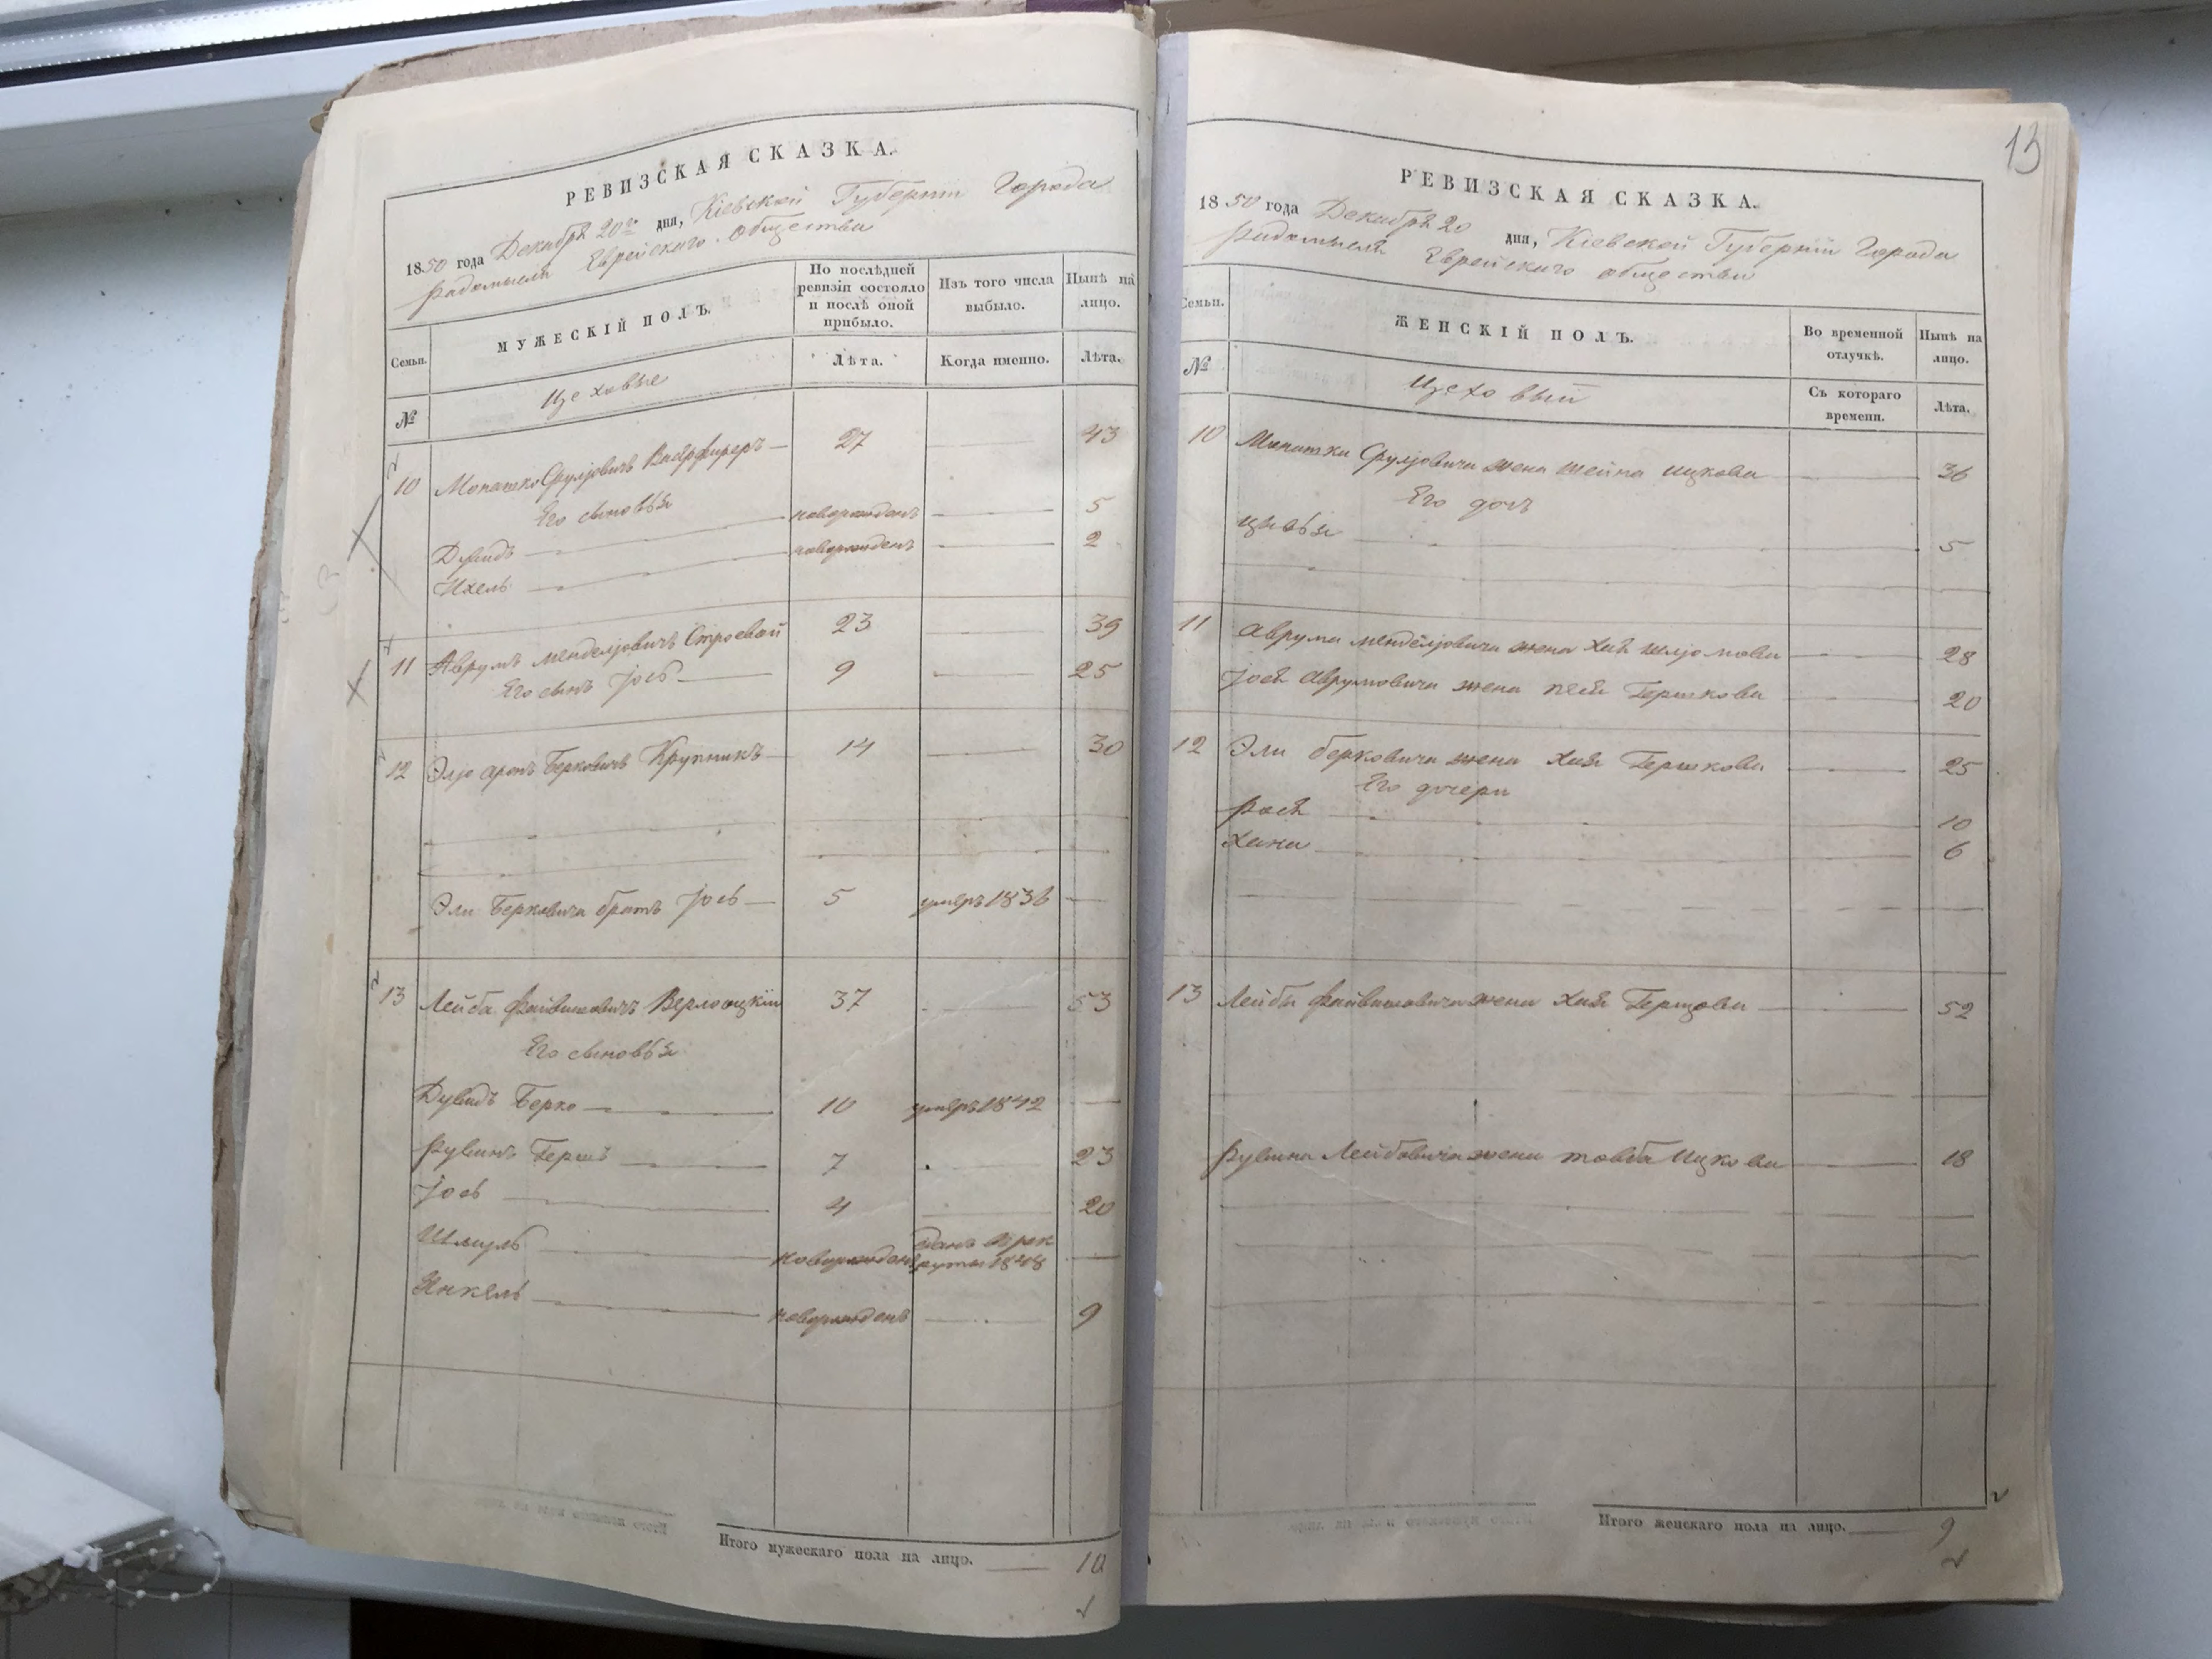 РЕВИЗСКАЯ СКАЗКА.
1850 года Декабря 20го дня, Кіевской Губерніи Города
Радомысля Еврейскаго общества
Семьи.
МУЖЕСКІЙ ПОЛЪ.
По послѣдней ревизіи состояло и послѣ оной прибыло.
Изъ того числа выбыло.
Нынѣ на лицо.
Лѣта.
Когда именно.
Лѣта.
№
Цеховые
10 Монашко Сруліовичъ 27 43
Его сыновья
Дувидъ новорожденъ 5
Ихель новорожденъ 2
11 Аврумъ Менделіовичъ Строевой 23 39
Его сынъ Іось 9 25
12 Эліо Аронъ Берковичъ Крупникъ 14 30
Эли Берковича братъ Іось 5 умеръ 1836
13 Лейба Файвишовичъ 37 53
Его сыновья
Дувидъ Берко 10 умеръ 1842
Рувинъ Гершъ 7 23
Іось 4 20
Шмуль новорожденъ зданъ в рек
руты 1848
Янкель новорожденъ 9
Итого мужескаго пола на лицо. 10
13
РЕВИЗСКАЯ СКАЗКА.
1850 года Декабря 20 дня, Кіевской Губерніи Города
Радомысля Еврейскаго общества
Семьи.
ЖЕНСКІЙ ПОЛЪ.
Во временной отлучкѣ.
Нынѣ на лицо.
№
Съ котораго времени.
Лѣта.
Цеховый
10 Монашки Сруліовича жена Шейна Ицкова 36
Его доч
Цивья 5
11 Аврума Менделіовича жена Хая Шліомова 28
Іося Аврумовича жена Песя Гершкова 20
12 Эли Берковича жена Хая Гершкова 25
Его дочери
Рося 10
Хана 6
13 Лейбы Файвишовича жена Хая Герцова 52
Рувина Лейбовича жена Товба Ицкова 18
Итого женскаго пола на лицо. 9